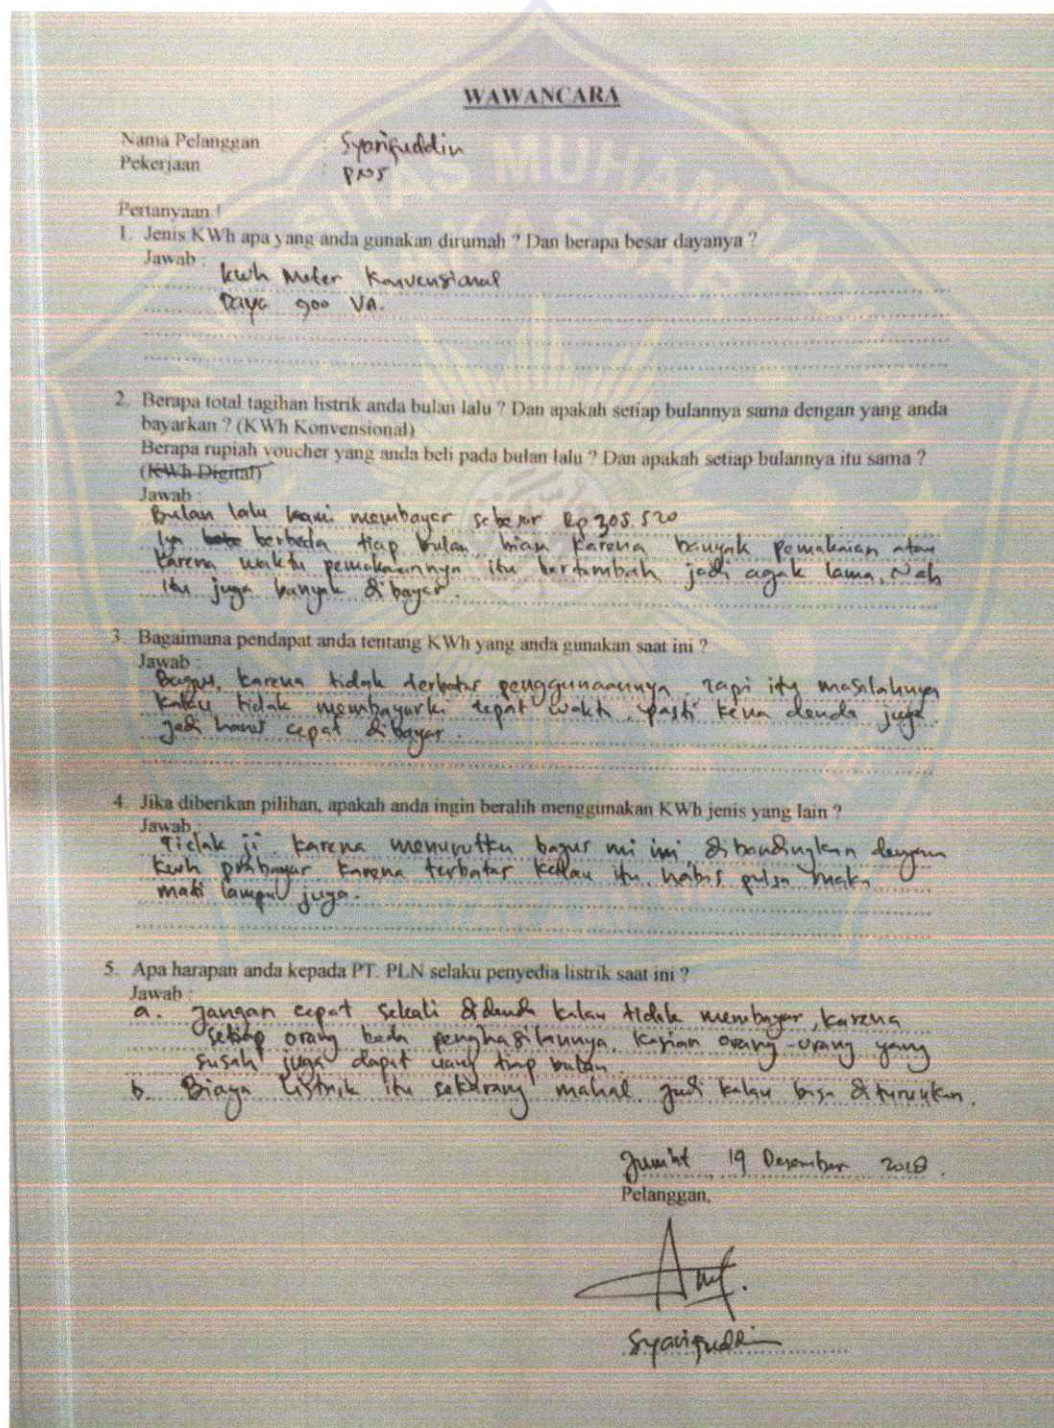 WAWANCARA
Nama Pelanggan : Syarifuddin
Pekerjaan : PNS
Pertanyaan !
1. Jenis KWh apa yang anda gunakan dirumah ? Dan berapa besar dayanya ?
Jawab :
kwh Meter Konvensional
Daya 900 VA.
2. Berapa total tagihan listrik anda bulan lalu ? Dan apakah setiap bulannya sama dengan yang anda
bayarkan ? (KWh Konvensional)
Berapa rupiah voucher yang anda beli pada bulan lalu ? Dan apakah setiap bulannya itu sama ?
(KWh Digital)
Jawab :
Bulan lalu kami membayar sebesar Rp 305.520
Iya berbeda tiap bulan, karena banyak pemakaian atau
karena waktu pemakaiannya itu bertambah jadi agak lama, Nah
itu juga banyak dibayar.
3. Bagaimana pendapat anda tentang KWh yang anda gunakan saat ini ?
Jawab :
Bagus, karena tidak terbatas penggunaannya, tapi itu masalahnya
kalau tidak membayarki tepat waktu, pasti kena denda juga
jadi harus cepat dibayar.
4. Jika diberikan pilihan, apakah anda ingin beralih menggunakan KWh jenis yang lain ?
Jawab :
Tidak ji karena menurutku bagus mi ini, dibandingkan dengan
kwh prabayar karena terbatas kalau itu, habis pulsa maka
mati lampu juga.
5. Apa harapan anda kepada PT. PLN selaku penyedia listrik saat ini ?
Jawab :
a. Jangan cepat sekali didenda kalau tidak membayar, karena
setiap orang beda penghasilannya, kasian orang-orang yang
susah juga dapat uang tiap bulan.
b. Biaya listrik itu sekarang mahal jadi kalau bisa diturunkan.
Jum'at, 19 Desember 2018.
Pelanggan,
Syarifuddin